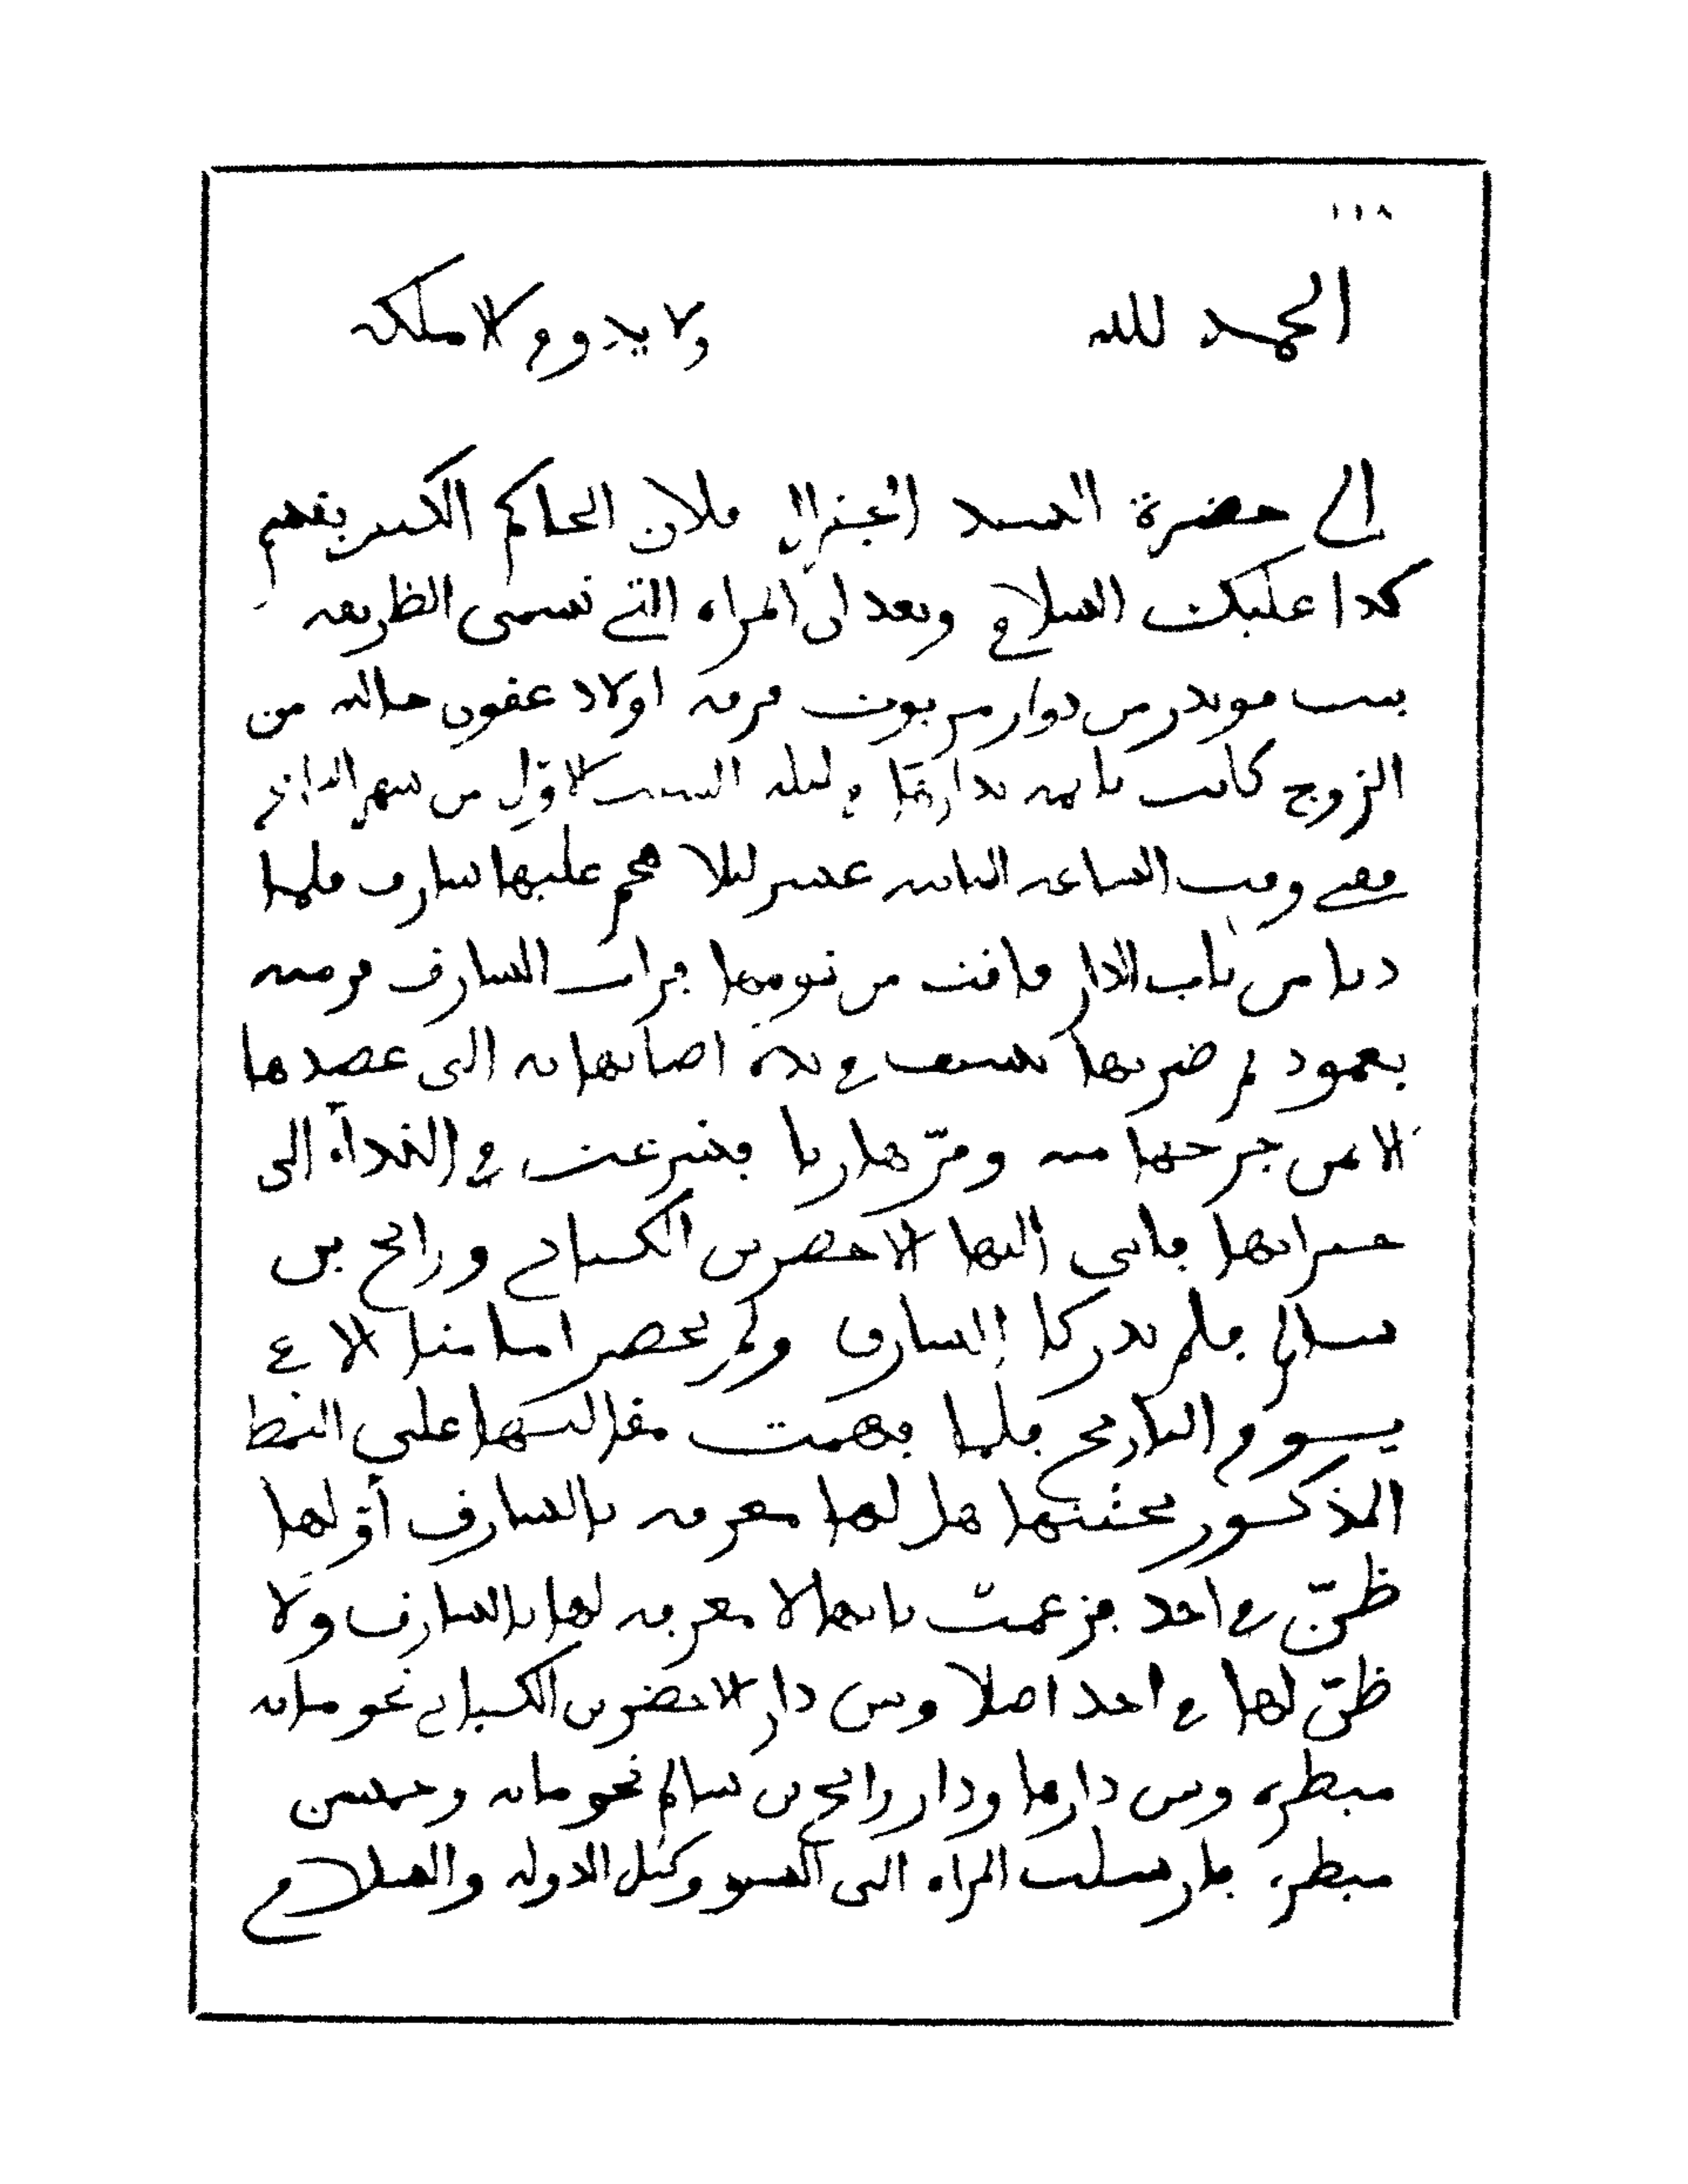 ١١٨
الحمد لله ولا يدوم الا ملكه
الى حضرة السيد الجنرال فلان الحاكم الكبير بقسم
كذا عليك السلام وبعد ان المراه التي تسمى الظريفه
بنت من دوار فرقه اولاد عفون خاليه من
الزوج كانت نايمه بدارها في ليله السبت الاول من شهر
ففي وقت الساعه الثانيه عشر ليلا هجم عليها سارق فلما
دنا من باب الدار فاقت من نومها فرات السارق فرمته
بعمود ثم ضربها بسيف في يده اصابها به الى عضدها
الايمن جرحها منه ومرّ هاربا فتسرعت في الغداة الى
جيرانها فاتى اليها الاخضر بن ورابح بن
سالم فلم يدركا السارق ولم يحضر امامنا الا في
يوم التاريخ فلما فهمت مقالتها على النمط
المذكور بحثتها هل لها معرفه بالسارق أو لها
ظنّ في احد فزعمت بانها لا معرفه لها بالسارق ولا
ظنّ لها في احد اصلا وبين دار الاخضر بن نحو مايه
ميطره وبين دارها ودار رابح بن سالم نحو مايه وخمسين
ميطره فارسلت المراه الى السيد وكيل الدوله والسلام